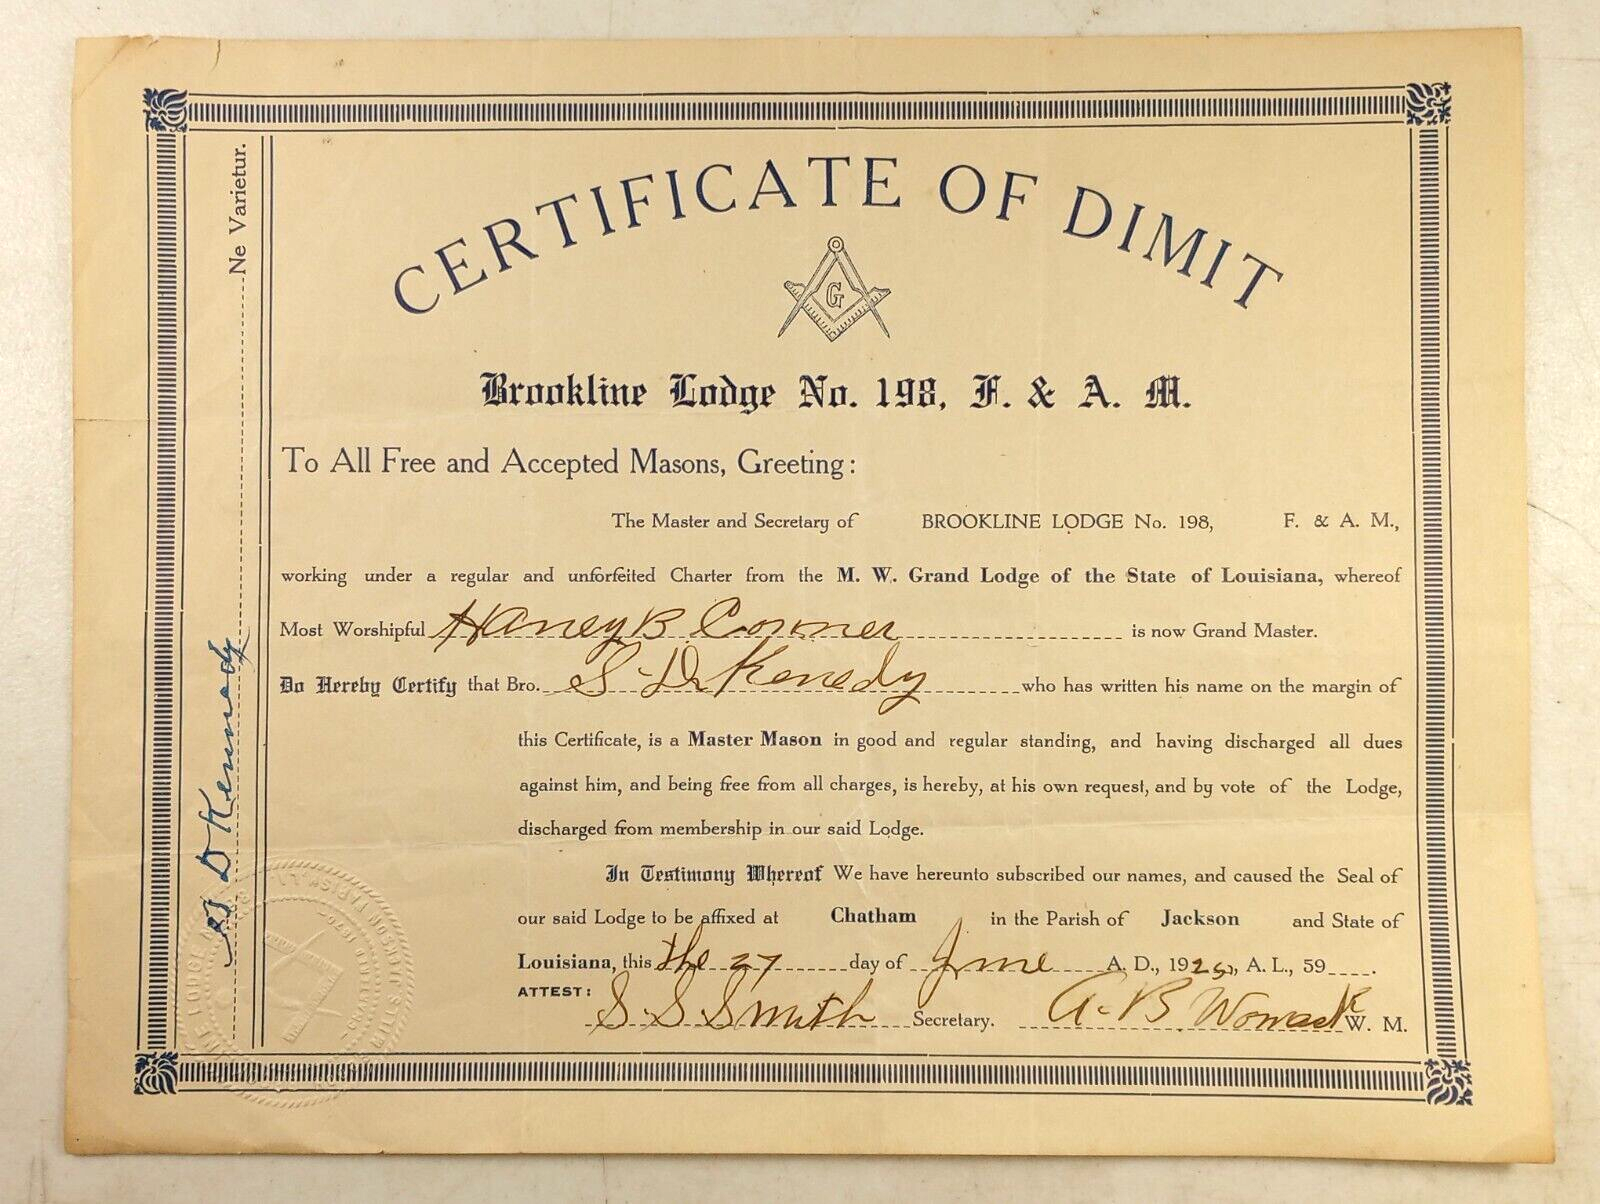 CERTIFICATE OF DIMIT
G
Brookline Lodge No. 198, F. & A. M.
To All Free and Accepted Masons, Greeting:
The Master and Secretary of BROOKLINE LODGE No. 198, F. & A. M.,
working under a regular and unforfeited Charter from the M. W. Grand Lodge of the State of Louisiana, whereof
Most Worshipful Haney B. Conner is now Grand Master.
Do Hereby Certify that Bro. S. D. Kenedy who has written his name on the margin of
this Certificate, is a Master Mason in good and regular standing, and having discharged all dues
against him, and being free from all charges, is hereby, at his own request, and by vote of the Lodge,
discharged from membership in our said Lodge.
In Testimony Whereof We have hereunto subscribed our names, and caused the Seal of
our said Lodge to be affixed at Chatham in the Parish of Jackson and State of
Louisiana, this the 27 day of June A. D., 192 , A. L., 59 .
ATTEST:
S S Smith Secretary. A. B. Womack W. M.
Ne Varietur.
S D Kennedy